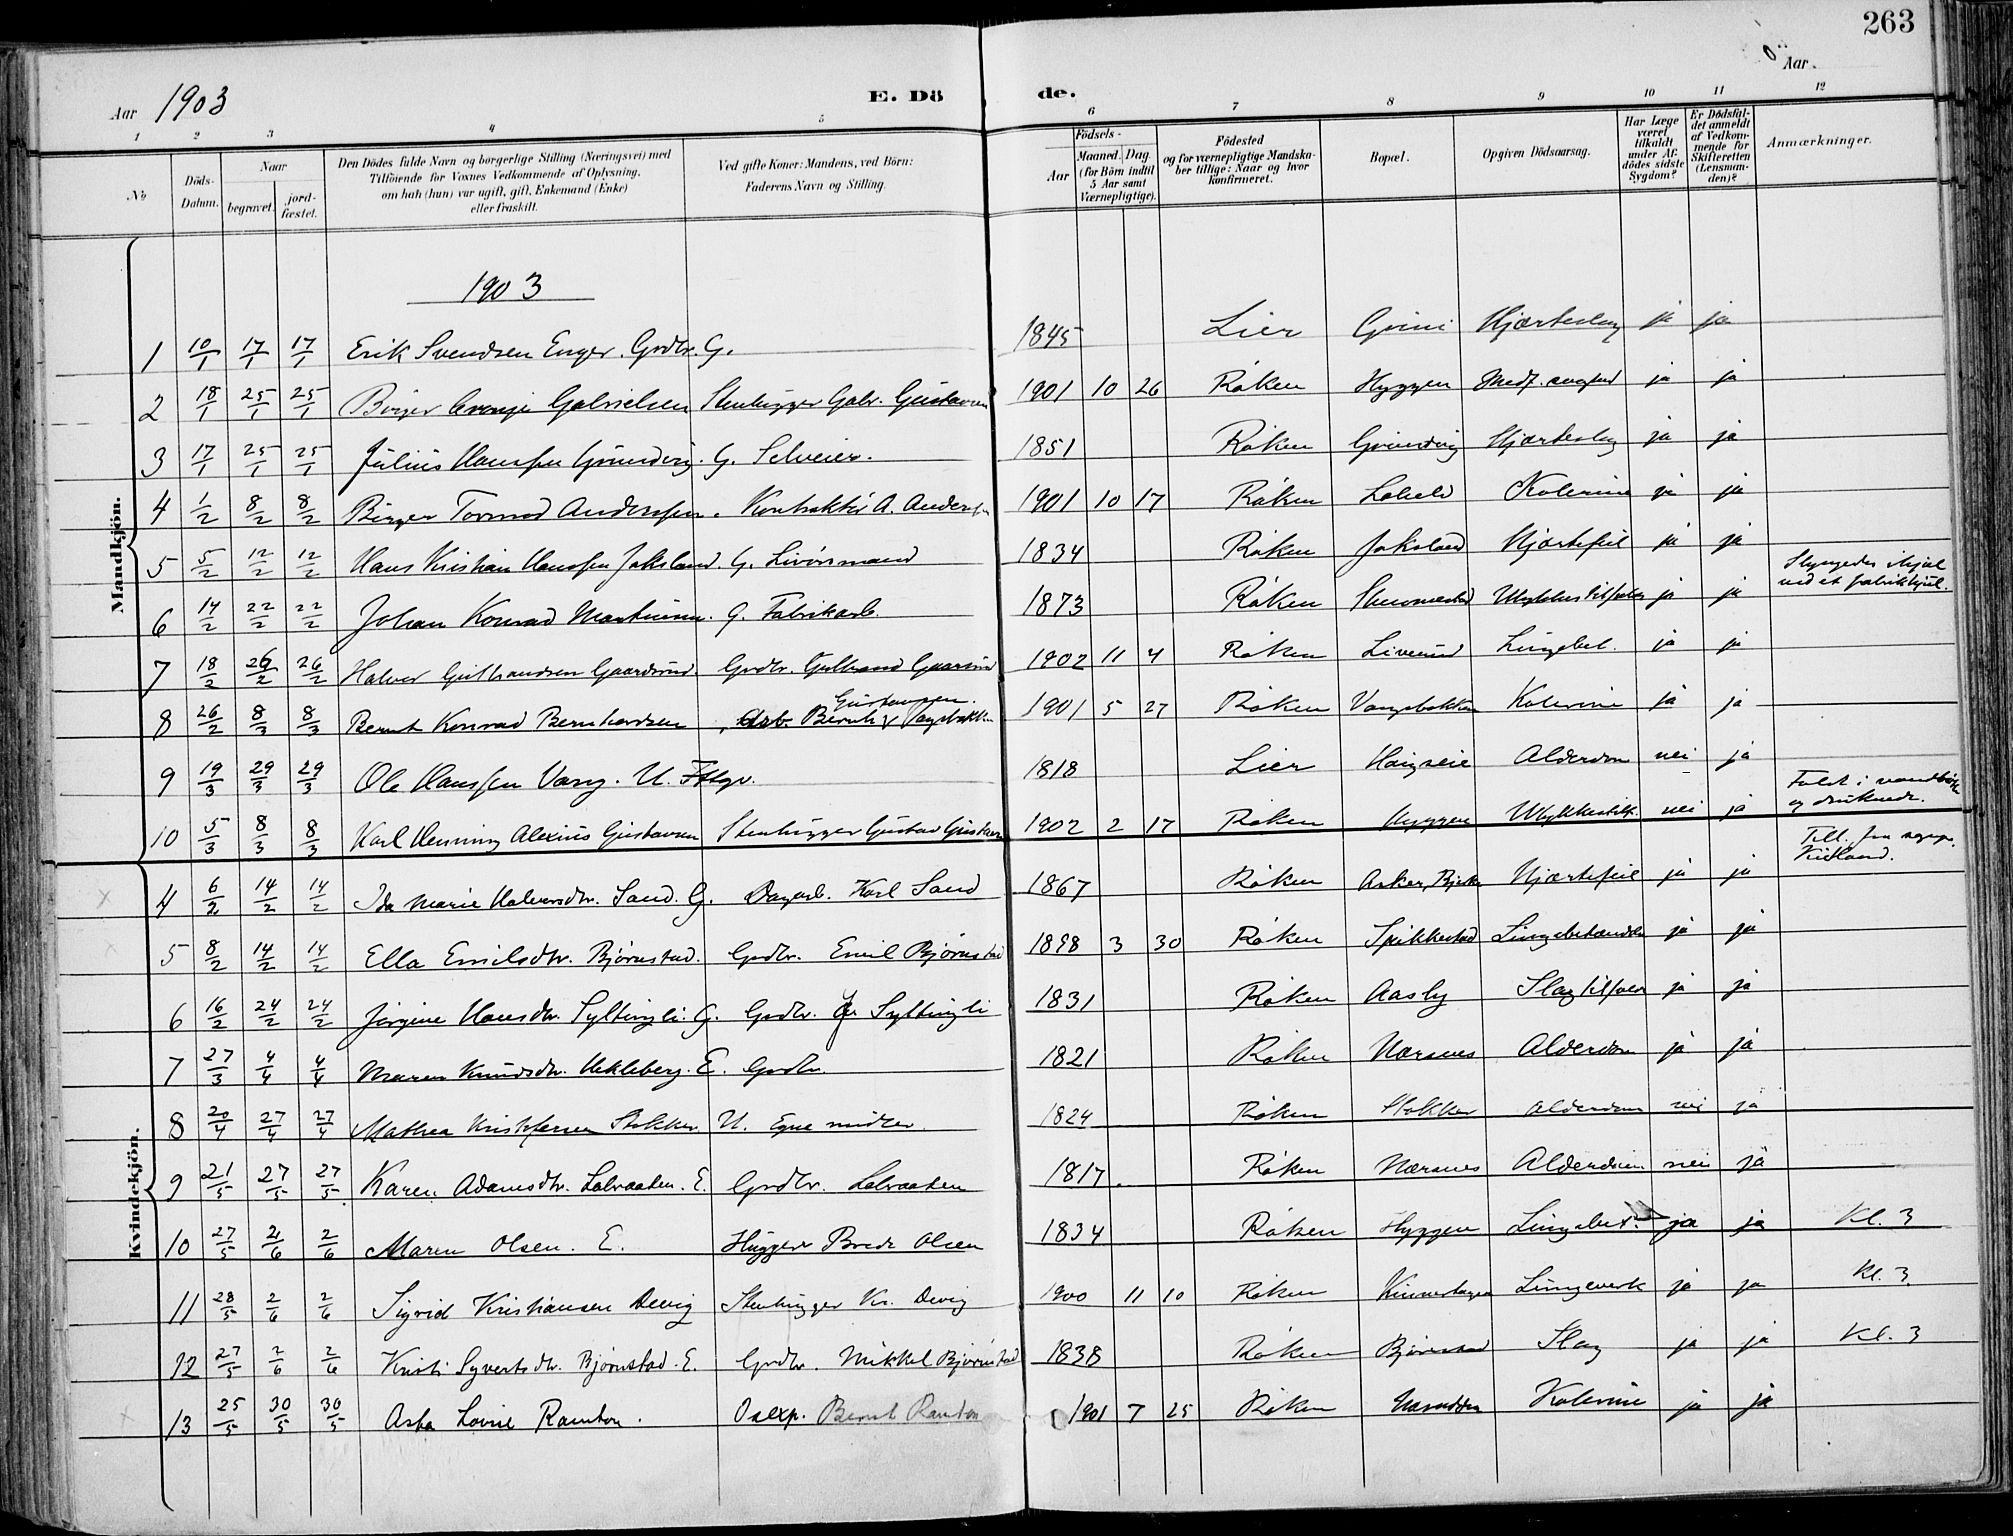 263
Aar 1903
E. Dö de.
Aar
1 2 3 4 5 6 7 8 9 10 11 12
No
Döds-Datum.
Naar begravet. jord-fæstet.
Den Dödes fulde Navn og borgerlige Stilling (Næringsvei) med Tilföiende for Voxnes Vedkommende af Oplysning, om han (hun) var ugift, gift, Enkemand (Enke) eller fraskilt.
Ved gifte Koner: Mandens, ved Börn: Faderens Navn og Stilling.
Födsels-
Aar Maaned. Dag. (for Börn indtil 5 Aar samt Værnepligtige).
Födested og for værnepligtige Mandskaber tillige: Naar og hvor konfirmeret.
Bopæl.
Opgiven Dödsaarsag.
Har Læge været tilkaldt under Afdödes sidste Sygdom?
Er Dödsfaldet anmeldt af Vedkommende for Skifteretten (Lensmanden)?
Anmærkninger.
Mandkjön.
1903
1 10/1 17/1 17/1 Erik Svendsen Enger. Grdbr. G. 1845 Lier Grini Hjerteslag ja ja
2 18/1 25/1 25/1 Birger Gabrielsen Stenhugger Gabr. Gustavsen 1901 10 26 Røken Hyggen ja ja
3 17/1 25/1 25/1 Julius Hanssen Grundvig. G. Selveier. 1851 Røken Grundvig Hjerteslag ja ja
4 1/2 8/2 8/2 Birger Tormod Anderssen. Kontraktør A. Anderssen 1901 10 17 Røken Kolerine ja ja
5 5/2 12/2 12/2 Hans Kristian Hanssen Jaksland. G. Livørsmand 1834 Røken Jaksland Hjertefeil ja ja
6 14/2 22/2 22/2 Johan Konrad Martinsen. G. Fabrikarb. 1873 Røken Ulykkestilfælde ja ja Slyngedes ihjel ved et fabrikhjul.
7 18/2 26/2 26/2 Halvor Gulbrandsen Gaardsrud. Grdbr. Gulbrand Gaardsrud 1902 11 4 Røken Liverud Lungebet. ja ja
8 26/2 8/3 8/3 Bernt Konrad Bernhardsen Arb. Bernh. Gustavssen Vangsbakken 1901 5 27 Røken Vangsbakken Kolerine ja ja
9 19/3 29/3 29/3 Ole Hanssen Vang. U. 1818 Lier Alderdom nei ja
10 5/3 8/3 8/3 Karl Henning Alexius Gustavsen Stenhugger Gustav Gustavsen 1902 2 17 Røken Hyggen Ulykkestilf. nei ja Faldt i vandbøtte og druknede.
Kvindekjön.
4 6/2 14/2 14/2 Ida Marie Halvorsdtr. Sand. G. Dagarb. Karl Sand 1867 Røken Asker, Hjertefeil ja ja Till. fra sognepr. Kielland.
5 8/2 14/2 14/2 Ella Emilsdtr. Bjørnstad. Grdbr. Emil Bjørnstad 1898 3 30 Røken Spikkestad Lungebetændelse ja ja
6 16/2 24/2 24/2 Jørgine Hansdtr. Syltingli. G. Grdbr. Syltingli 1831 Røken Aasly Slagtilfæl. ja ja
7 27/3 4/4 4/4 Maren Knudsdtr. Hekleberg. E. Grdbr. 1821 Røken Nærsnes Alderdom ja ja
8 20/4 27/4 27/4 Mathea Kristofersen Stokker U. Egne midler. 1824 Røken Stokker Alderdom nei ja
9 21/5 27/5 27/5 Karen Adamsdtr. Labraaten. E. Grdbr. Labraaten 1817 Røken Nærsnes Alderdom nei ja
10 27/5 2/6 2/6 Maren Olsen. E. Hugger Brede Olsen 1834 Røken Hyggen Lungebet. ja ja Kl. 3
11 28/5 2/6 2/6 Sigrid Kristiansen Devig Stenhugger Kr. Devig 1900 11 10 Røken ja ja Kl. 3
12 27/5 2/6 2/6 Kristi Syvertsdtr. Bjørnstad. E. Grdbr. Mikkel Bjørnstad 1838 Røken Bjørnstad Slag ja ja Kl. 3
13 25/5 30/5 30/5 Asta Lovise Ramton. Bernt Ramton 1901 7 25 Røken Kolerine ja ja